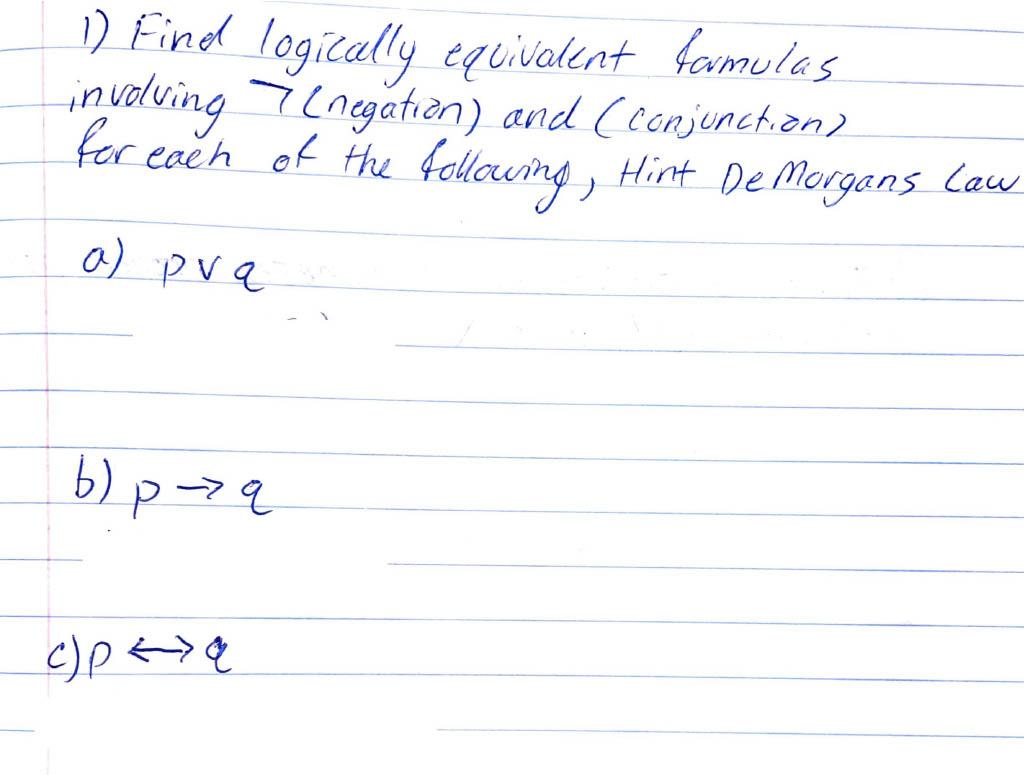 1) Find logically equivalent formulas
involving ¬ (negation) and (conjunction)
for each of the following, Hint DeMorgans Law
a) p ∨ q
b) p → q
c) p ↔ q